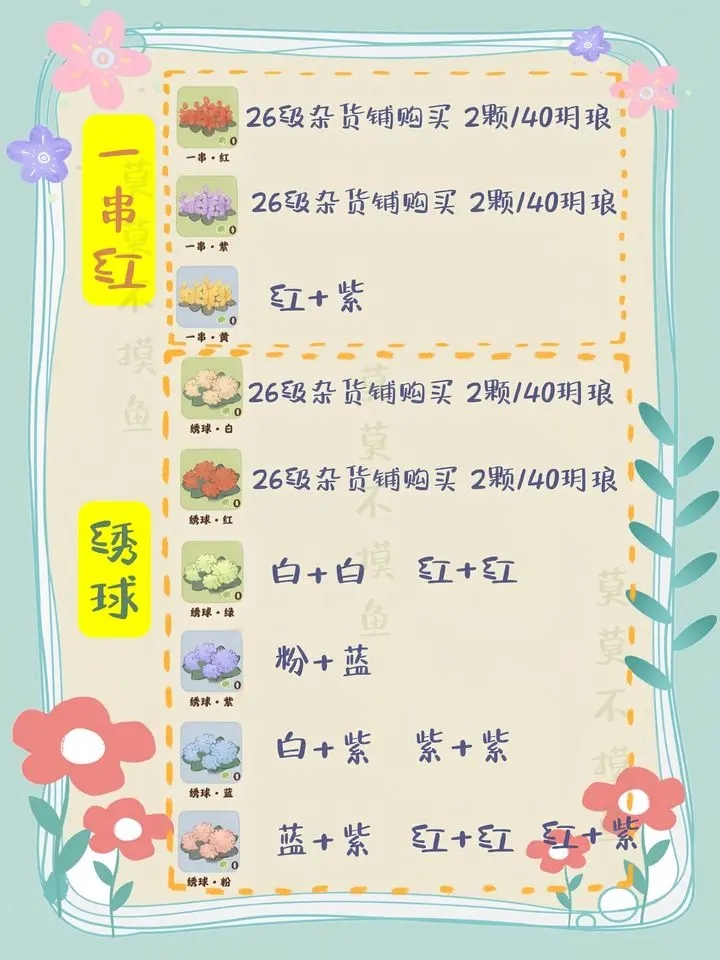 一串红
26级杂货铺购买 2颗/40玥琅
0
一串·红
26级杂货铺购买 2颗/40玥琅
0
一串·紫
红+紫
0
一串·黄
绣球
26级杂货铺购买 2颗/40玥琅
0
绣球·白
26级杂货铺购买 2颗/40玥琅
0
绣球·红
白+白 红+红
0
绣球·绿
粉+蓝
0
绣球·紫
白+紫 紫+紫
0
绣球·蓝
蓝+紫 红+红 红+紫
0
绣球·粉
莫莫不摸鱼
莫莫不摸鱼
莫莫不摸